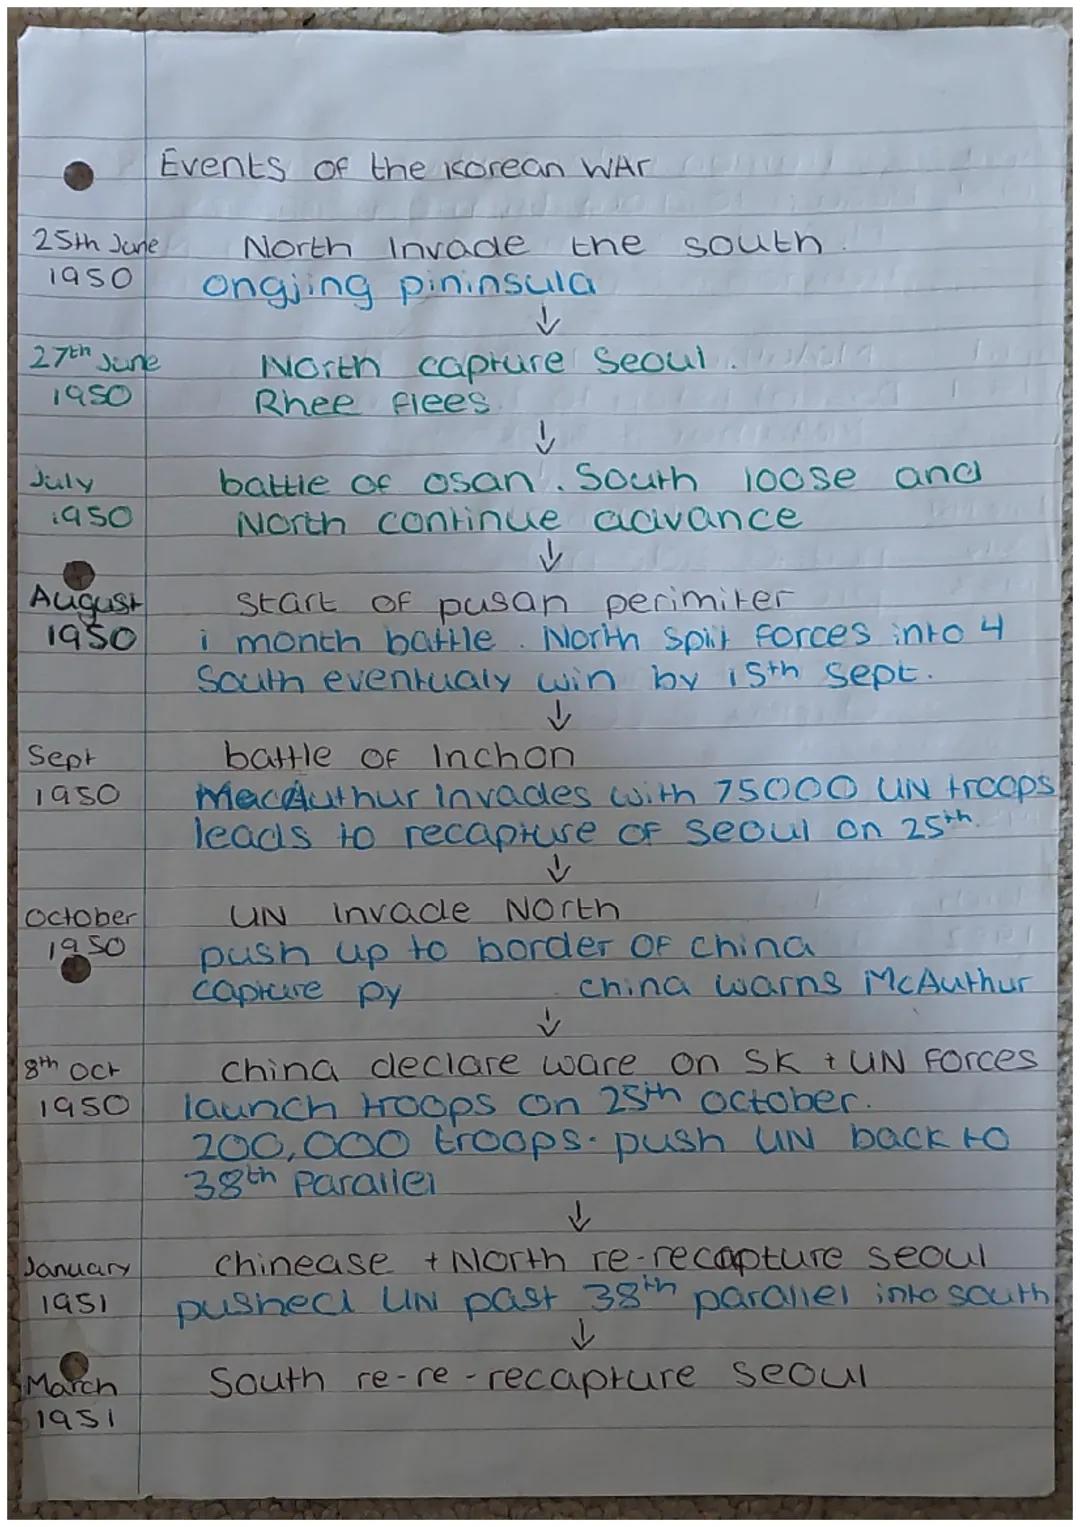 Events of the Korean WAr
25th June North Invade the south.
1950 ongjing pininsula
↓
27th June North capture Seoul.
1950 Rhee flees
↓
July battle of osan. South loose and
1950 North continue advance
↓
August start of pusan perimiter
1950 1 month battle. North split forces into 4
South eventualy win by 15th Sept.
↓
Sept battle of Inchon
1950 MacAuthur invades with 75000 UN troops
leads to recapture of Seoul on 25th.
↓
October UN invade North
1950 push up to border of china
capture py china warns McAuthur
↓
8th Oct china declare ware on SK + UN forces
1950 launch troops on 25th october.
200,000 troops. push UN back to
38th parallel
↓
January chinease + North re-recapture seoul
1951 pushed UN past 38th parallel into south
↓
March South re-re-recapture seoul
1951